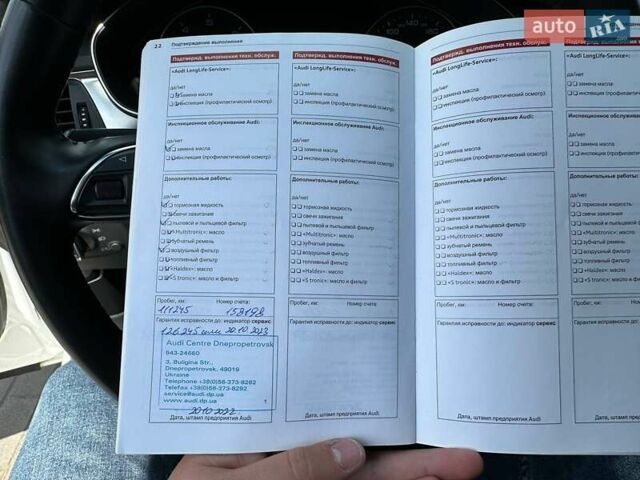 auto RIA
22 Подтверждение выполнения
Подтвержд. выполнения техн. обслуж.
«Audi LongLife-Service»:
да/нет
замена масла
инспекция (профилактический осмотр)
Инспекционное обслуживание Audi:
да/нет
замена масла
инспекция (профилактический осмотр)
Дополнительные работы:
да/нет
тормозная жидкость
свечи зажигания
пылевой и пыльцевой фильтр
«Multitronic»: масло
зубчатый ремень
воздушный фильтр
топливный фильтр
«Haldex»: масло
«S tronic»: масло и фильтр
Пробег, км: Номер счета:
111245 158198
Гарантия исправности до: индикатор сервис
126.245 или 20.10.2023
Audi Centre Dnepropetrovsk
943-24660
3, Buligina Str.,
Dnepropetrovsk, 49019
Ukraine
Telephone +38(0)56-373-8282
Telefax +38(0)56-373-8292
service@audi.dp.ua
www.audi.dp.ua 1
20.10.2022
Дата, штамп предприятия Audi
Подтвержд. выполнения техн. обслуж.
«Audi LongLife-Service»:
да/нет
замена масла
инспекция (профилактический осмотр)
Инспекционное обслуживание Audi:
да/нет
замена масла
инспекция (профилактический осмотр)
Дополнительные работы:
да/нет
тормозная жидкость
свечи зажигания
пылевой и пыльцевой фильтр
«Multitronic»: масло
зубчатый ремень
воздушный фильтр
топливный фильтр
«Haldex»: масло
«S tronic»: масло и фильтр
Пробег, км: Номер счета:
Гарантия исправности до: индикатор сервис
Дата, штамп предприятия Audi
Подтвержд. выполнения техн. обслуж.
«Audi LongLife-Service»:
да/нет
замена масла
инспекция (профилактический осмотр)
Инспекционное обслуживание Audi:
да/нет
замена масла
инспекция (профилактический осмотр)
Дополнительные работы:
да/нет
тормозная жидкость
свечи зажигания
пылевой и пыльцевой фильтр
«Multitronic»: масло
зубчатый ремень
воздушный фильтр
топливный фильтр
«Haldex»: масло
«S tronic»: масло и фильтр
Пробег, км: Номер счета:
Гарантия исправности до: индикатор сервис
Дата, штамп предприятия Audi
Подтвержд. выполне
«Audi LongLife-Service»:
да/нет
замена масла
инспекция (профил
Инспекционное обслу
да/нет
замена масла
инспекция (профил
Дополнительные рабо
да/нет
тормозная жидкос
свечи зажигания
пылевой и пыль
«Multitronic»: мас
зубчатый ремень
воздушный филь
топливный филь
«Haldex»: масло
«S tronic»: масло
Пробег, км:
Гарантия исправности
Дата, штамп